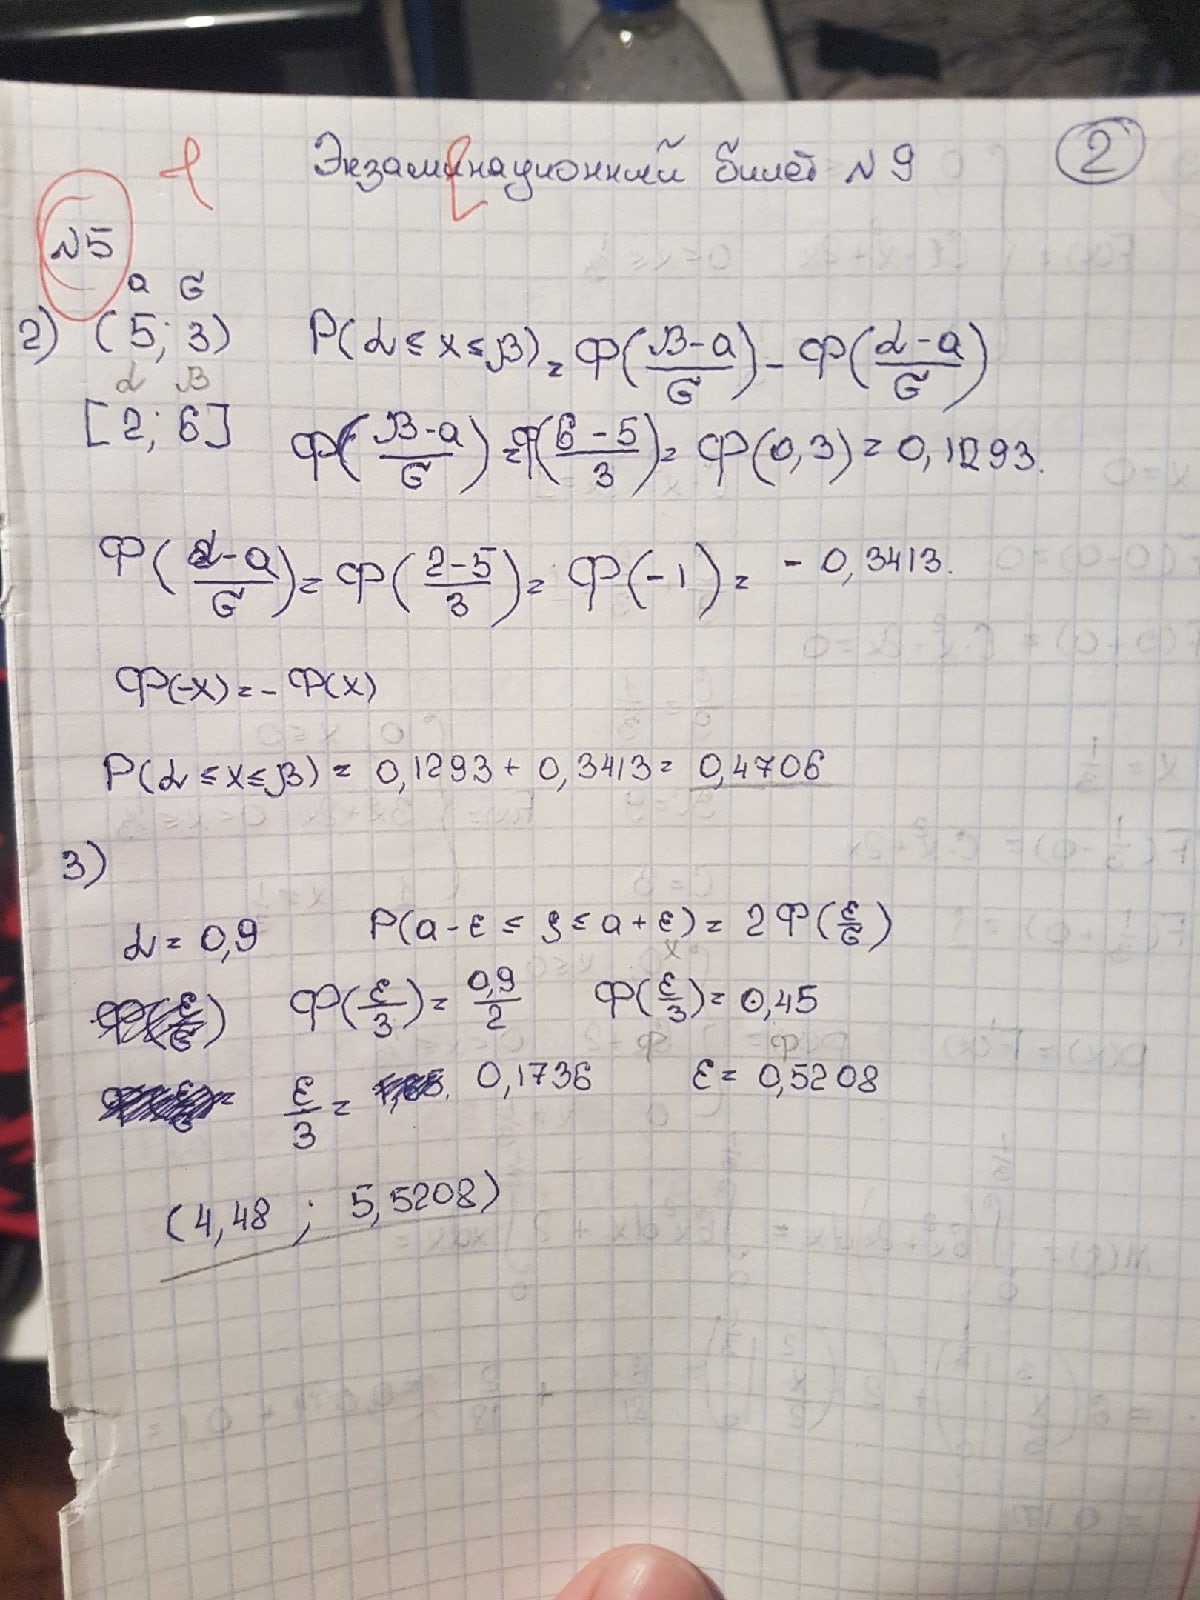 Экзаменационный билет №9 2
№5
a σ
2) (5; 3) P(α ≤ x ≤ β) = Φ((β-a)/σ) - Φ((α-a)/σ)
α β
[2; 6] Φ((β-a)/σ) = Φ((6-5)/3) = Φ(0,3) = 0,1293.
Φ((α-a)/σ) = Φ((2-5)/3) = Φ(-1) = -0,3413.
Φ(-x) = -Φ(x)
P(α ≤ x ≤ β) = 0,1293 + 0,3413 = 0,4706
3)
α = 0,9 P(a-ε ≤ ξ ≤ a+ε) = 2Φ(ε/σ)
x
Φ(ε/3) = 0,9/2 Φ(ε/3) = 0,45
φ φ
ε/3 = 0,1736 ε = 0,5208
(4,48 ; 5,5208)